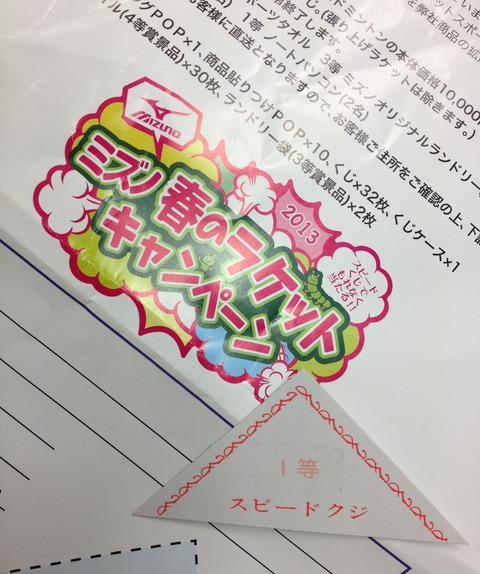 ットスポー
を弊社商品の拡
ドミントンの本体価格10,000
(張り上げラケットは除きます。)
終了します。
ポーツタオル 3等 ミズノオリジナルランドリー
1等 ノートパソコン(2名)
客様に直送となりますので、お客様ご住所をご確認の上、下
ングPOP×1、商品貼りつけPOP×10、くじ×32枚、くじケース×1
イル(4等賞景品)×30枚、ランドリー袋(3等賞景品)×2枚
MIZUNO
2013
ミズノ 春のラケット
キャンペーン
スピード
くじで
もれなく
当たる!!
1等
スピードクジ